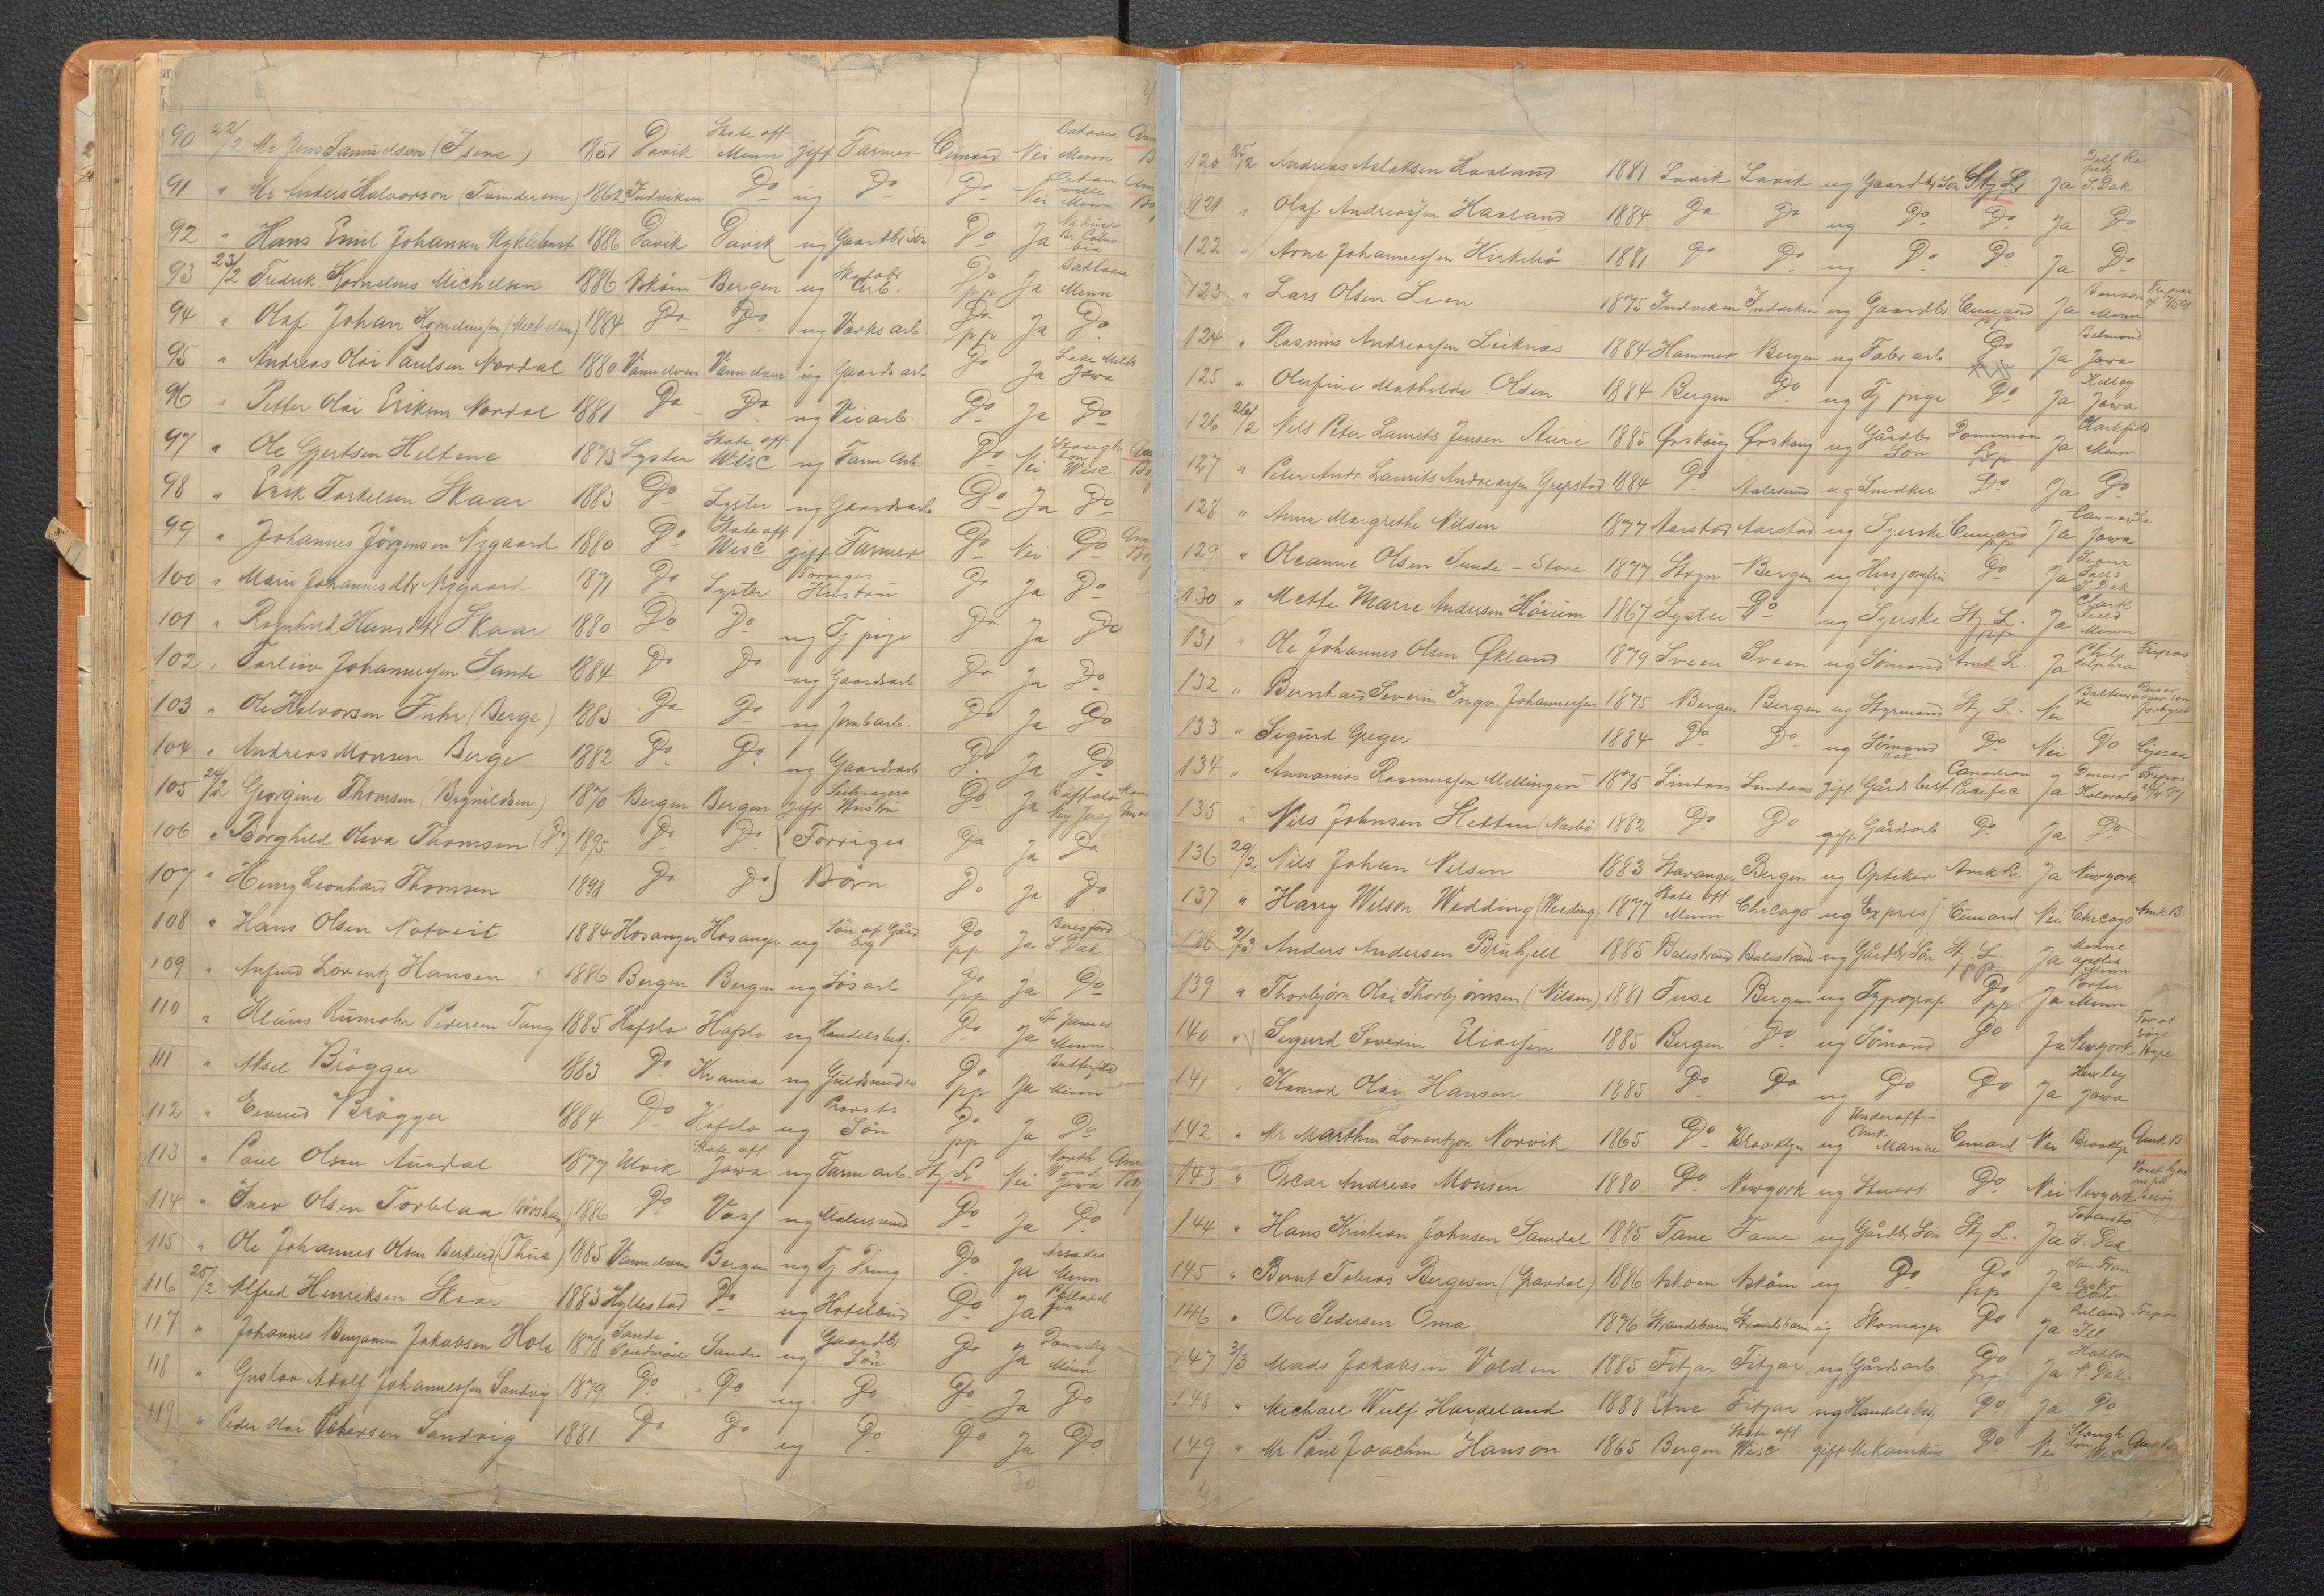 90 22/2 Mr Jens Samuelson (Isene) 1851 Davik State off Minn gift Farmer Cunard Nei Minn
91 " Mr Anders Halvorson 1862 Indviken Do ug Do Do Nei Minn
92 " Hans Emil Johansen Myklebust 1886 Davik Davik ug Gaardbr Sön Do Ja
93 23/2 Fredrik Kornelius Michelsen 1886 Askøen Bergen ug Arb. Do pp Ja Minn
94 " Olaf Johan Korneliussen (Mickelsen) 1884 Do Do ug Værks arb. Do pp Ja Do
95 " Andreas Olai Paulsen Nordal 1880 ug Gaards arb Do Ja Lake Mills Jowa
96 " Petter Olai Eriksen Nordal 1881 Do Do ug Veiarb. Do Ja Do
97 " Ole Gjertsen Heltene 1873 Lyster State off Wisc ug Farm Arb. Do Nei Stoughton Wisc.
98 " Erik Torkelsen Skaar 1883 Do Lyster ug Gaardsarb Do Ja Do
99 " Johannes Jörgensen Nygaard 1880 Do State off Wisc gift Farmer Do Nei Do
100 " Marie Johannesdtr Nygaard 1871 Do Lyster Forriges Hustru Do Ja Do
101 " Ragnhild Hansdtr Skaar 1880 Do Do ug Tj pige Do Ja Do
102 " Torleiv Johannessen Sande 1884 Do Do ug Gaardsarb Do Ja Do
103 " Ole Halvorsen Fuhr (Berge) 1883 Do Do ug Jernbarb. Do Ja Do
104 " Andreas Monsen Berge 1882 Do Do ug Gaardsarb Do Ja Do
105 24/2 Georgine Thomsen (Brynildsen) 1870 Bergen Bergen gift Hustru Do Ja Buffalo
106 " Borghild Oliva Thomsen (Do) 1895 Do Do Forriges Do Ja Do
107 " Henry Leonhard Thomsen 1898 Do Do Börn Do Ja Do
108 " Hans Olsen Notveit 1884 Hosanger Hosanger ug Sön af Gård brg Do pp Ja Beresford S. Dak
109 " Anfind Lorentz Hansen 1886 Bergen Bergen ug Lösarb Do pp Ja Do
110 " Klaus Rumohr Pedersen Tang 1885 Hafslo Hafslo ug Handelsbetj. Do Ja St James Minn.
111 " Aksel Brögger 1883 Do Krania ug Guldsmed Do pp Ja Minn
112 " Eivind Brögger 1884 Do Hafslo ug Provsts Sön Do pp Ja Do
113 " Paul Olsen Aundal 1877 Ulvik State off Jowa ug Farm arb. Stj L. Nei North Wood Jowa
114 " Iver Olsen Torblaa 1886 Do Voss ug Malersvend Do Ja Do
115 " Ole Johannes Olsen (Thue) 1885 Bergen ug Tj Dreng Do Ja Minn
116 25/2 Alfred Henriksen Skaar 1883 Hyllestad Do ug Hotelbud Do Ja
117 " Johannes Benjamin Jakobsen Hole 1878 Sande Søndmøre Sande ug Gaardbr Sön Do Ja Minn
118 " Gustav Adolf Johannessen Sandvig 1879 Do Do ug Do Do Ja Do
119 " Peder Olai Petersen Sandvig 1881 Do Do ug Do Do Ja Do
30
120 25/2 Andreas Aslaksen Haaland 1881 Lavik Lavik ug Gaardbr Sön Stj L Ja Dell Rapids S. Dak
121 " Olaf Andreassen Haaland 1884 Do Do ug Do Do Ja Do
122 " Arne Johannessen Kirkebö 1881 Do Do ug Do Do Ja Do
123 " Lars Olsen Lien 1875 Indviken Indviken ug Gaardbr Cunard pp Ja Benson Minn
124 " Rasmus Andreassen Leiknes 1884 Hammer Bergen ug Fabr arb Do Ja Belmond Jowa
125 " Olufine Mathilde Olsen 1884 Bergen Do ug Tj pige Do Ja Kelley Jowa
126 26/2 Nils Peter Laurits Jensen Aure 1885 Ørskoug Ørskoug ug Gårdbr Sön Dominion pp Ja Clarkfield Minn
127 " Peter Andr Laurits Andreassen Grepstad 1884 Do Aalesund ug Snedker Do Ja Do
128 " Anna Margrethe Nilsen 1877 Aarstad Aarstad ug Syerske Cunard pp Ja Jowa
129 " Oleanne Olsen Sunde - Store 1877 Stryn Bergen ug Husjomfru Do Ja Sioux Falls S. Dak
130 " Mette Marie Andersen Höium 1867 Lyster Do ug Syerske Stj L. pp Ja Clarkfield Minn
131 " Ole Johannes Olsen Økland 1879 Sveen Sveen ug Sömand Amk L. Ja Philadelphia Fripas
132 " Bernhard Severin Ingv. Johannessen 1875 Bergen Bergen ug Styrmand Stj L. Nei Baltimore Reiser over som forhyret
133 " Sigurd Greger 1884 Do Do ug Sömand Do Nei Do Ligesaa
134 " Annanias Rasmussen Mellingen 1875 Lindaas Lindaas gift Gårdsbest Canadian Pacific Ja Denver Kolorado Fripas
135 " Nils Johnsen Hetten (Næsbö) 1882 Do Do gift Gårdsarb Do Ja Do
136 29/2 Nils Johan Nilsen 1883 Stavanger Bergen ug Optiker Amk L. Ja Newyork
137 " Harry Wilson Wedding (Weeding) 1877 State off Minn Chicago ug Expres Cunard Nei Chicago Amk B.
138 2/3 Anders Andersen Bruhjell 1885 Balestrand Balestrand ug Gårdbr Sön Stj. L. pp Ja Minneapolis Minn
139 " Thorbjørn Olai Thorbjørnsen (Nilsen) 1881 Fuse Bergen ug Typograf Do pp Ja Porter Minn
140 " Sigurd Severin Eliassen 1885 Bergen Do ug Sömand Do Ja Newyork For at söge Hyre
141 " Konrad Olai Hansen 1885 Do Do ug Do Do Ja Huxley Jowa
142 " Mr Marthin Lorentzon Norvik 1865 Do Brooklyn ug Underoff. Amk Marine Cunard Nei Brooklyn Amk B
143 " Oscar Andreas Monsen 1880 Do Newyork ug Stuert Do Nei Newyork
144 " Hans Kristian Johnsen Samdal 1885 Fane Fane ug Gårdbr Sön Stj L. Ja S. Dak
145 " Bernt Tobias Bergesen (Gravdal) 1886 Askøen Askøen ug Do Do pp Ja San Francisko Cal.
146 " Ole Pedersen Oma 1876 Strandebarm Strandebarm ug Skomager Do Ja Leland Ill Fripas
147 3/3 Mads Jakobsen Valden 1885 Fitjar Fitjar ug Gårdsarb. Do pp Ja Hatton N. Dak.
148 " Michael Wulf Hardeland 1888 Etne Fitjar ug Handelsbetj Do Ja Do
149 " Mr Paul Joachim Hanson 1865 Bergen State off Wisc gift Mekanikus Do Nei Stoughton Wisc Amk B
30